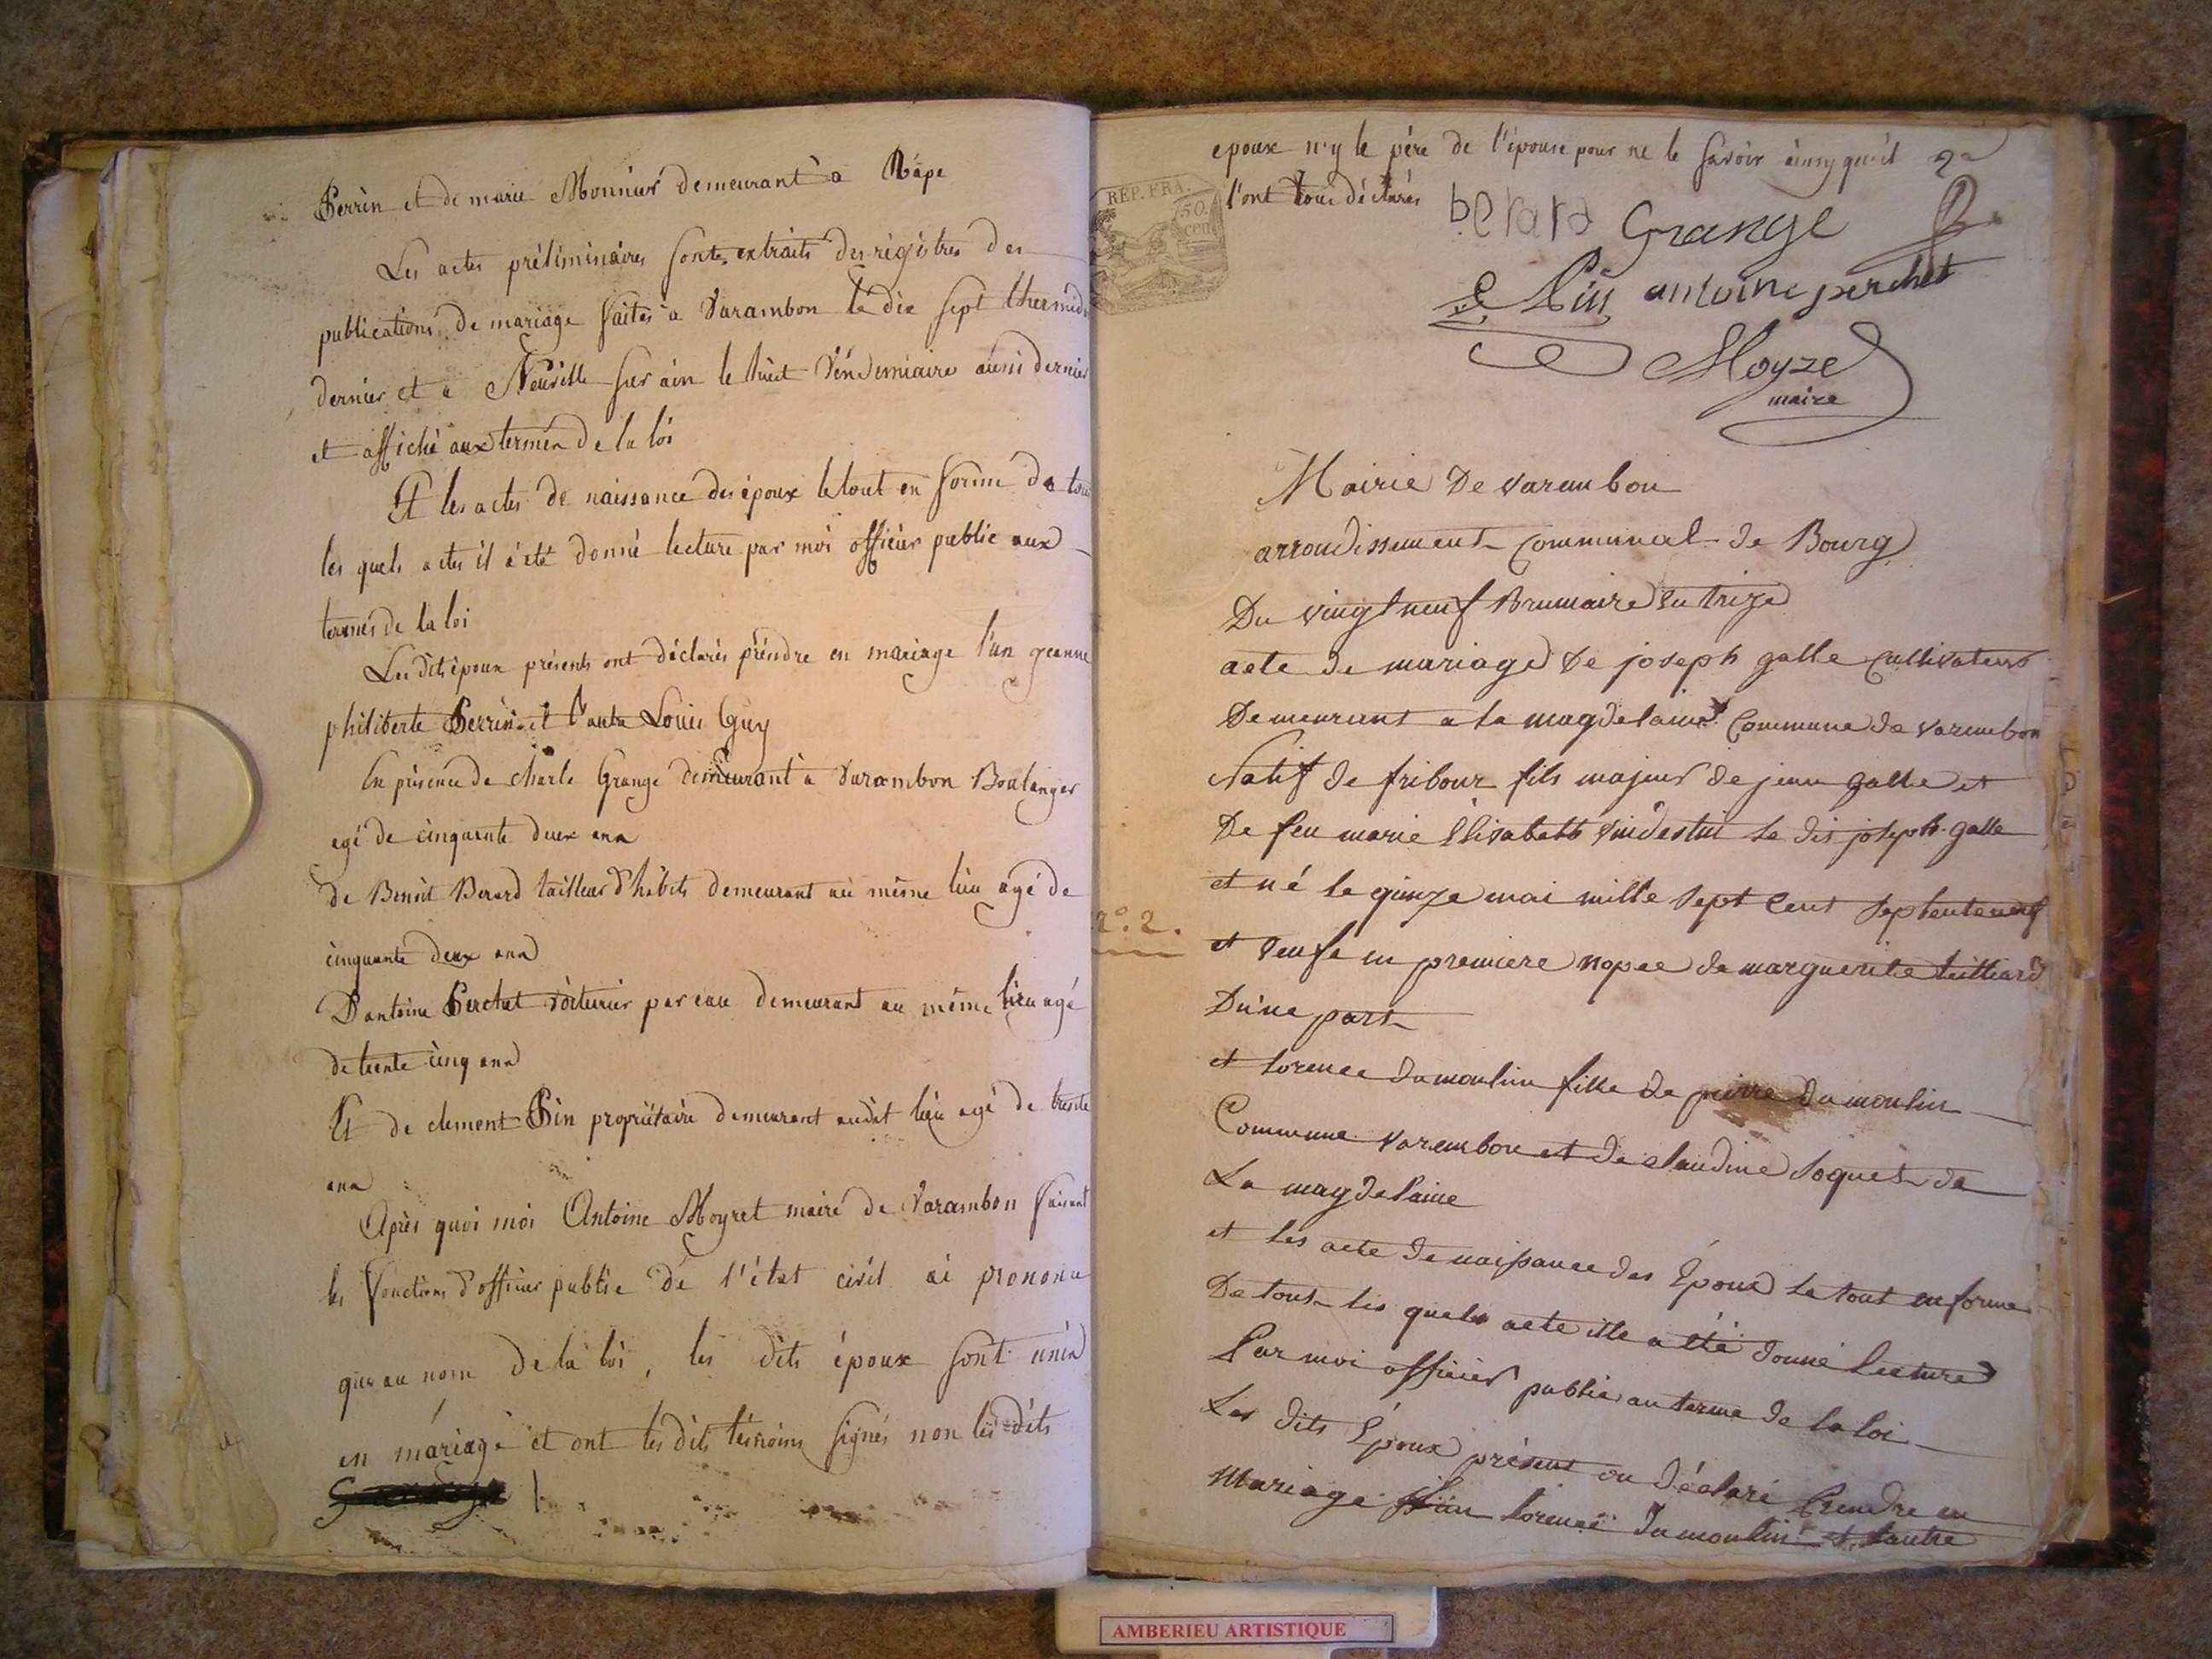 Perrin et de marie Monnier demeurant à Rape
Les actes préliminaires sont extraits des régistres des
publications de mariage faites a Varambon le dix sept thermid
dernier et a Neuville sur ain le huit Véndemiaire aussi dernier
et affiché aux termes de la loi
Et les actes de naissance des époux le tout en forme de tou
les quels actes il à été donné lecture par moi officier public aux
termes de la loi
Les dits époux présents ont déclarés préndre en mariage l'un geanne
philiberte Perrin et l'autre Louis Guy
En présence de charle Grange demeurant à Varambon Boulanger
agé de cinquante deux ans
de Benoit Berard tailleur d'habits demeurant au même lieu agé de
cinquante deux ans
D'antoine Perchet voiturier par eau demeurant au même lieu agé
de trente cinq ans
Et de clement Pin propriétaire demeurant audit lieu agé de trente
ans
Après quoi moi Antoine Moyret maire de Varambon faisant
les fonctions d'officier public de l'état civil ai prononcé
qu'au nom de la loi, les dits époux sont unis
en máriage et ont les dits témoins signés non les dits
epoux n'y le père de l'épouse pour ne le savoir ainsy qu'il
l'ont tous déclarés
REP. FRA.
50.
cen
berard Grange
Pin antoine perchet
Moyret
maire
Mairie De varambon
arrondissement Communal de Bourg
Du vingt neuf Brumaire an trize
acte de mariage De joseph galle cultivateur
Demeurant a la magdelaine Commune de varambon
Natif de fribour fils majeur de jean galle et
De feu marie Elisabeth le dis joseph galle
et né le quinze mai mille sept cent septente neuf
n°. 2.
et veufe en premiere nopce de marguerite
D'une part
et lorence dumoulin fille de pierre dumoulin
Commune varambon et de claudine loquet de
La magdelaine
et les acte de naissance des Époux le tout en forme
De tout les quels acte ille a été donné lecture
Par moi officier public au terme de la loi
Les dits Époux présent on déclaré Prendre en
Mariage l'un lorence dumoulin et lautre
AMBERIEU ARTISTIQUE